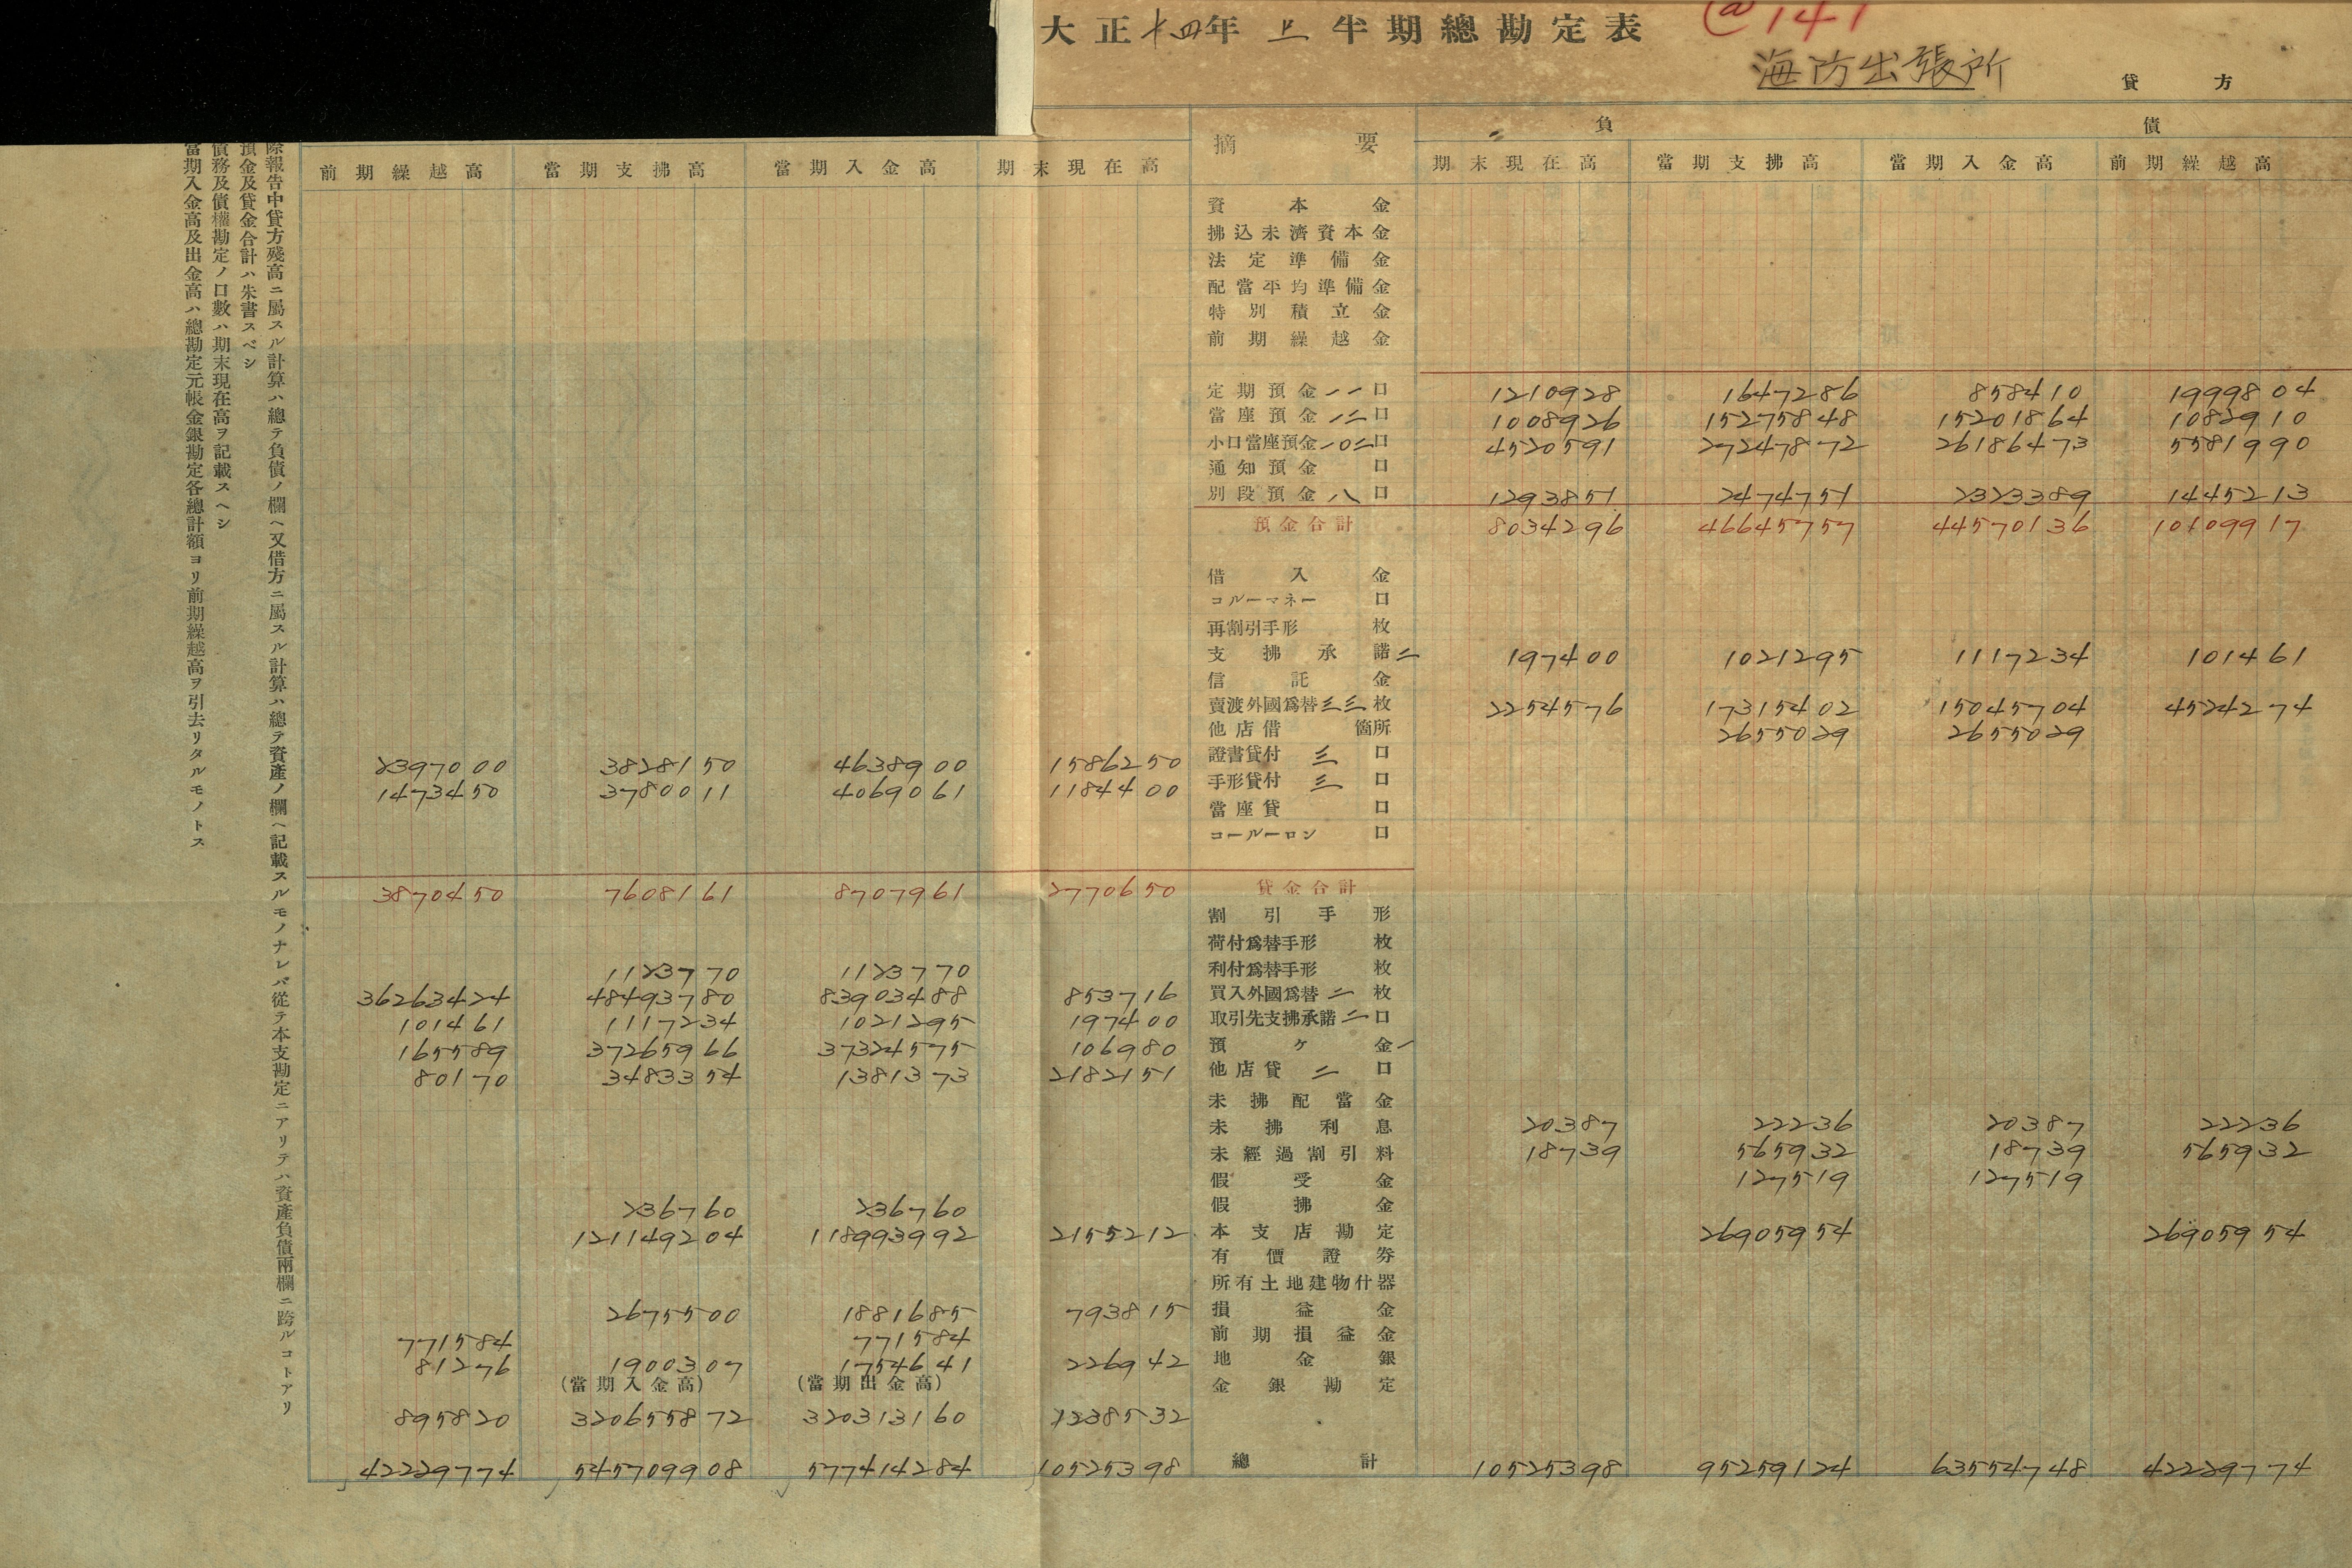 大正十四年上半期總勘定表
@141
海防出張所
貸方
摘要
負債
前期繰越高 當期支拂高 當期入金高 期末現在高 期末現在高 當期支拂高 當期入金高 前期繰越高
資本金
拂込未濟資本金
法定準備金
配當平均準備金
特別積立金
前期繰越金
定期預金一一口 1210928 1647286 858410 1999804
當座預金一二口 1008926 15275848 15201864 1082910
小口當座預金一〇二口 4520591 27247872 26186473 5581990
通知預金口
別段預金八口 1293851 2474751 2323389 1445213
預金合計 8034296 46645757 44570136 10109917
借入金
コルーマネー口
再割引手形枚
支拂承諾二 197400 1021295 1117234 101461
信託金
賣渡外國爲替三三枚 2254576 17315402 15045704 4524274
他店借箇所 2655029 2655029
2397000 3828150 4638900 1586250 證書貸付三口
1473450 3780011 4069061 1184400 手形貸付三口
當座貸口
コールーロン口
3870450 7608161 8707961 2770650 貸金合計
割引手形
荷付爲替手形枚
1123770 1123770 利付爲替手形枚
36263424 48493780 83903488 853716 買入外國爲替二枚
101461 1117234 1021295 197400 取引先支拂承諾二口
165589 37265966 37324575 106980 預ケ金一
80170 3483354 1381373 2182151 他店貸二口
未拂配當金
未拂利息 20387 22236 20387 22236
未經過割引料 18739 565932 18739 565932
假受金 127519 127519
236760 236760 假拂金
121149204 118993992 2155212 本支店勘定 26905954 26905954
有價證券
所有土地建物什器
2675500 1881685 793815 損益金
771584 771584 前期損益金
81276 1900307 1754641 226942 地金銀
(當期入金高) (當期出金高) 金銀勘定
895820 320655872 320313160 1238532
42229774 545709908 577414284 10525398 總計 10525398 95259124 63554748 42229774
除報告中貸方殘高ニ屬スル計算ハ總テ負債ノ欄ヘ又借方ニ屬スル計算ハ總テ資產ノ欄ヘ記載スルモノナレバ從テ本支勘定ニアリテハ資產負債兩欄ニ跨ルコトアリ
預金及貸金合計ハ朱書スベシ
債務及債權勘定ノ口數ハ期末現在高ヲ記載スヘシ
當期入金高及出金高ハ總勘定元帳金銀勘定各總計額ヨリ前期繰越高ヲ引去リタルモノトス